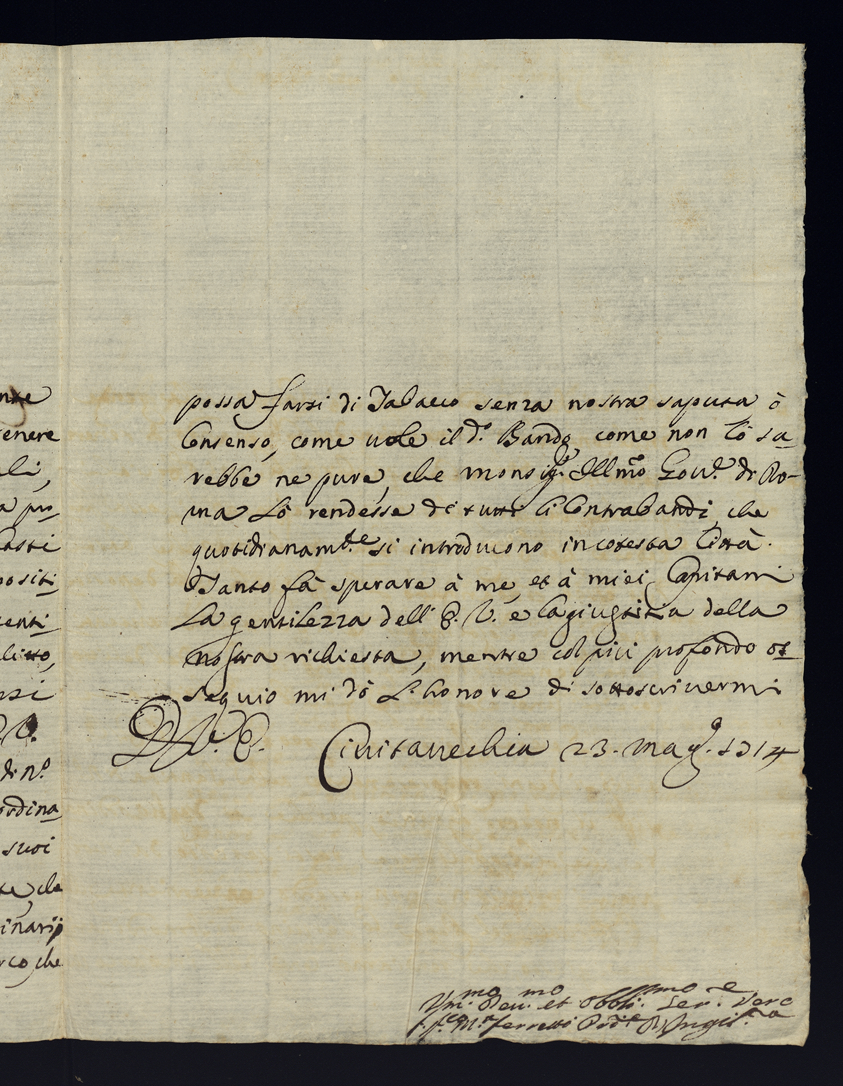 nte
tenere
li,
a pro-
asti
positi-
enti-
litto,
rsi
V.
di n.º
ordina
suoi
te, che
inarij
rco, che
possa farsi di Tabacco senza nostra saputa ò
Consenso, come uole il d.º Bando, come non lo sa-
rebbe ne pure, che monsig.r Ill.mo Gou.re di Ro-
ma Lò rendesse de tutti li Contrabandi, che
quotidianam.te si introducono in cotesta Città.
Tanto fà sperare à me, et à miei Capitani
La gentilezza dell' E. V. e la giustizia della
nostra richiesta, mentre col più profondo os-
sequio mi dò L'honore di sottoscriuermi
D. V. E. Ciuitauechia 23. mag.º 1714
Vm.mo Deu.mo et Obbli.mo Ser.re Vero
f. f.co M.a ferretti